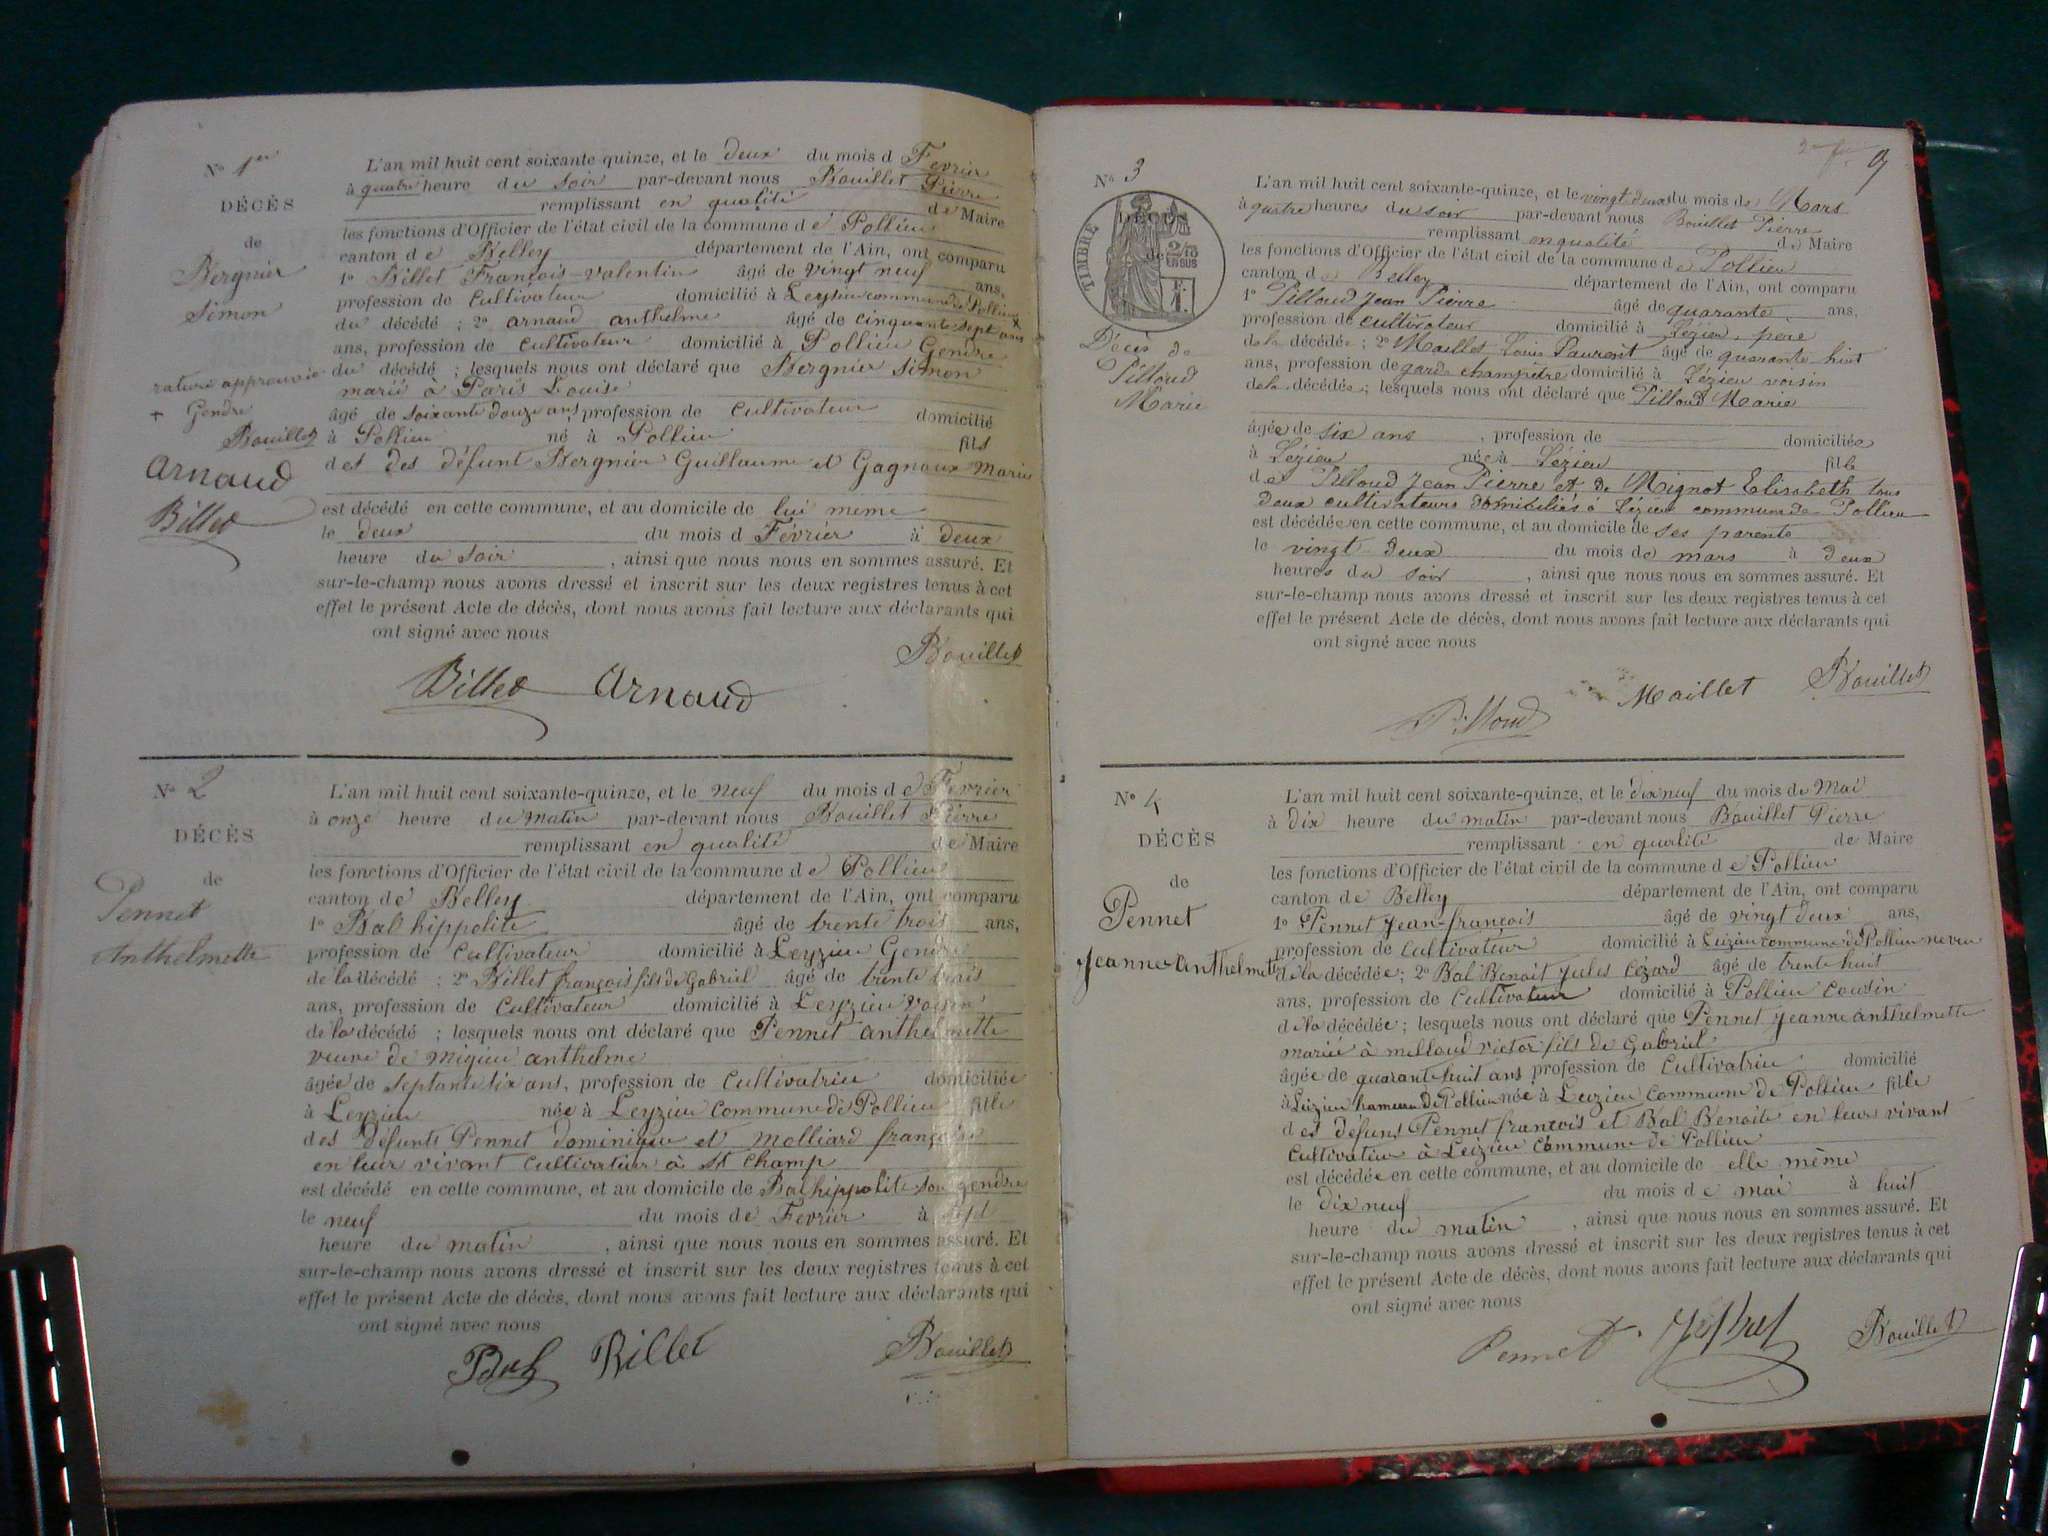 No 1er
DÉCÈS
de
Bergnier
Simon
rature approuvée
+ Gendre
Bouillet
Arnaud
Billet
L'an mil huit cent soixante quinze, et le deux du mois d Fevrier
à quatre heure du soir par-devant nous Bouillet Pierre
remplissant en qualité de Maire
les fonctions d'Officier de l'état civil de la commune de Pollieu
canton de Belley département de l'Ain, ont comparu
1o Billet François-Valentin âgé de vingt neuf ans,
profession de Cultivateur domicilié à Leyzieu commune de Pollieu x
du décédé ; 2o arnaud anthelme âgé de cinquante sept ans
ans, profession de Cultivateur domicilié à Pollieu Gendre
du décédé ; lesquels nous ont déclaré que Bergnier Simon
marié à Paris Louise
âgé de soixante douze ans, profession de Cultivateur domicilié
à Pollieu né à Pollieu fils
des des défunt Bergnier Guillaume et Gagnoux Marie
est décédé en cette commune, et au domicile de lui meme
le deux du mois d Février à deux
heure du soir , ainsi que nous nous en sommes assuré. Et
sur-le-champ nous avons dressé et inscrit sur les deux registres tenus à cet
effet le présent Acte de décès, dont nous avons fait lecture aux déclarants qui
ont signé avec nous
Bouillet
Billet Arnaud
No 2
DÉCÈS
de
Pennet
Anthelmette
L'an mil huit cent soixante-quinze, et le neuf du mois de Fevrier
à onze heure du matin par-devant nous Bouillet Pierre
remplissant en qualité de Maire
les fonctions d'Officier de l'état civil de la commune de Pollieu
canton de Belley département de l'Ain, ont comparu
1o Bal hippolite âgé de trente trois ans,
profession de Cultivateur domicilié à Leyzieu Gendre
de la décédé ; 2o Billet françois fils de Gabriel âgé de trente trois
ans, profession de Cultivateur domicilié à Leyzieu voisin
de la décédé ; lesquels nous ont déclaré que Pennet anthelmette
veuve de migieu anthelme
âgée de septante six ans, profession de Cultivatrice domiciliée
à Leyzieu née à Leyzieu Commune de Pollieu fille
des défunts Pennet dominique et Molliard françoise
en leur vivant Cultivateur à St Champ
est décédé en cette commune, et au domicile de Bal hippolite son gendre
le neuf du mois de Fevrier à sept
heure du matin , ainsi que nous nous en sommes assuré. Et
sur-le-champ nous avons dressé et inscrit sur les deux registres tenus à cet
effet le présent Acte de décès, dont nous avons fait lecture aux déclarants qui
ont signé avec nous
Bal Billet Bouillet
9
No 3
TIMBRE
DÉCÈS
de
Décès de
Pilloud
Marie
L'an mil huit cent soixante-quinze, et le vingt deux du mois de Mars
à quatre heures du soir par-devant nous Bouillet Pierre
remplissant en qualité de Maire
les fonctions d'Officier de l'état civil de la commune de Pollieu
canton de Belley département de l'Ain, ont comparu
1o Pilloud Jean Pierre âgé de quarante ans,
profession de cultivateur domicilié à Lézieu, pere
de la décédée ; 2o Maillet Louis Laurent âgé de quarante huit
ans, profession de garde champêtre domicilié à Lézieu voisin
de la décédée ; lesquels nous ont déclaré que Pilloud Marie
âgée de six ans , profession de domiciliée
à Lézieu née à Lézieu fille
de Pilloud Jean Pierre et de Mignot Elisabeth tous
deux cultivateurs domiciliés à Lézieu commune de Pollieu
est décédée en cette commune, et au domicile de ses parents
le vingt deux du mois de mars à deux
heures du soir , ainsi que nous nous en sommes assuré. Et
sur-le-champ nous avons dressé et inscrit sur les deux registres tenus à cet
effet le présent Acte de décès, dont nous avons fait lecture aux déclarants qui
ont signé avec nous
Pilloud Maillet Bouillet
No 4
DÉCÈS
de
Pennet
Jeanne anthelmette
L'an mil huit cent soixante-quinze, et le dix neuf du mois de Mai
à dix heure du matin par-devant nous Bouillet Pierre
remplissant en qualité de Maire
les fonctions d'Officier de l'état civil de la commune de Pollieu
canton de Belley département de l'Ain, ont comparu
1o Pennet Jean-françois âgé de vingt deux ans,
profession de Cultivateur domicilié à Leizieu commune de Pollieu neveu
de la décédée ; 2o Bal Benoit Jules Cézard âgé de trente huit
ans, profession de Cultivateur domicilié à Pollieu cousin
de la décédée ; lesquels nous ont déclaré que Pennet Jeanne anthelmette
mariée à milloud victor fils de Gabriel
âgée de quarante huit ans profession de Cultivatrice domicilié
à Leizieu hameau de Pollieu née à Leizieu Commune de Pollieu fille
des défuns Pennet françois et Bal Benoite en leur vivant
Cultivateur à Leizieu Commune de Pollieu
est décédée en cette commune, et au domicile de elle même
le dix neuf du mois de mai à huit
heure du matin , ainsi que nous nous en sommes assuré. Et
sur-le-champ nous avons dressé et inscrit sur les deux registres tenus à cet
effet le présent Acte de décès, dont nous avons fait lecture aux déclarants qui
ont signé avec nous
Pennet Bouillet